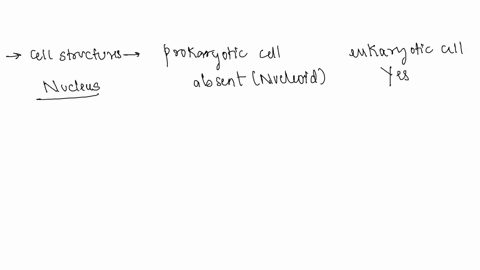 → cell structures → prokaryotic cell eukaryotic cell
Nucleus absent (Nucleoid) Yes